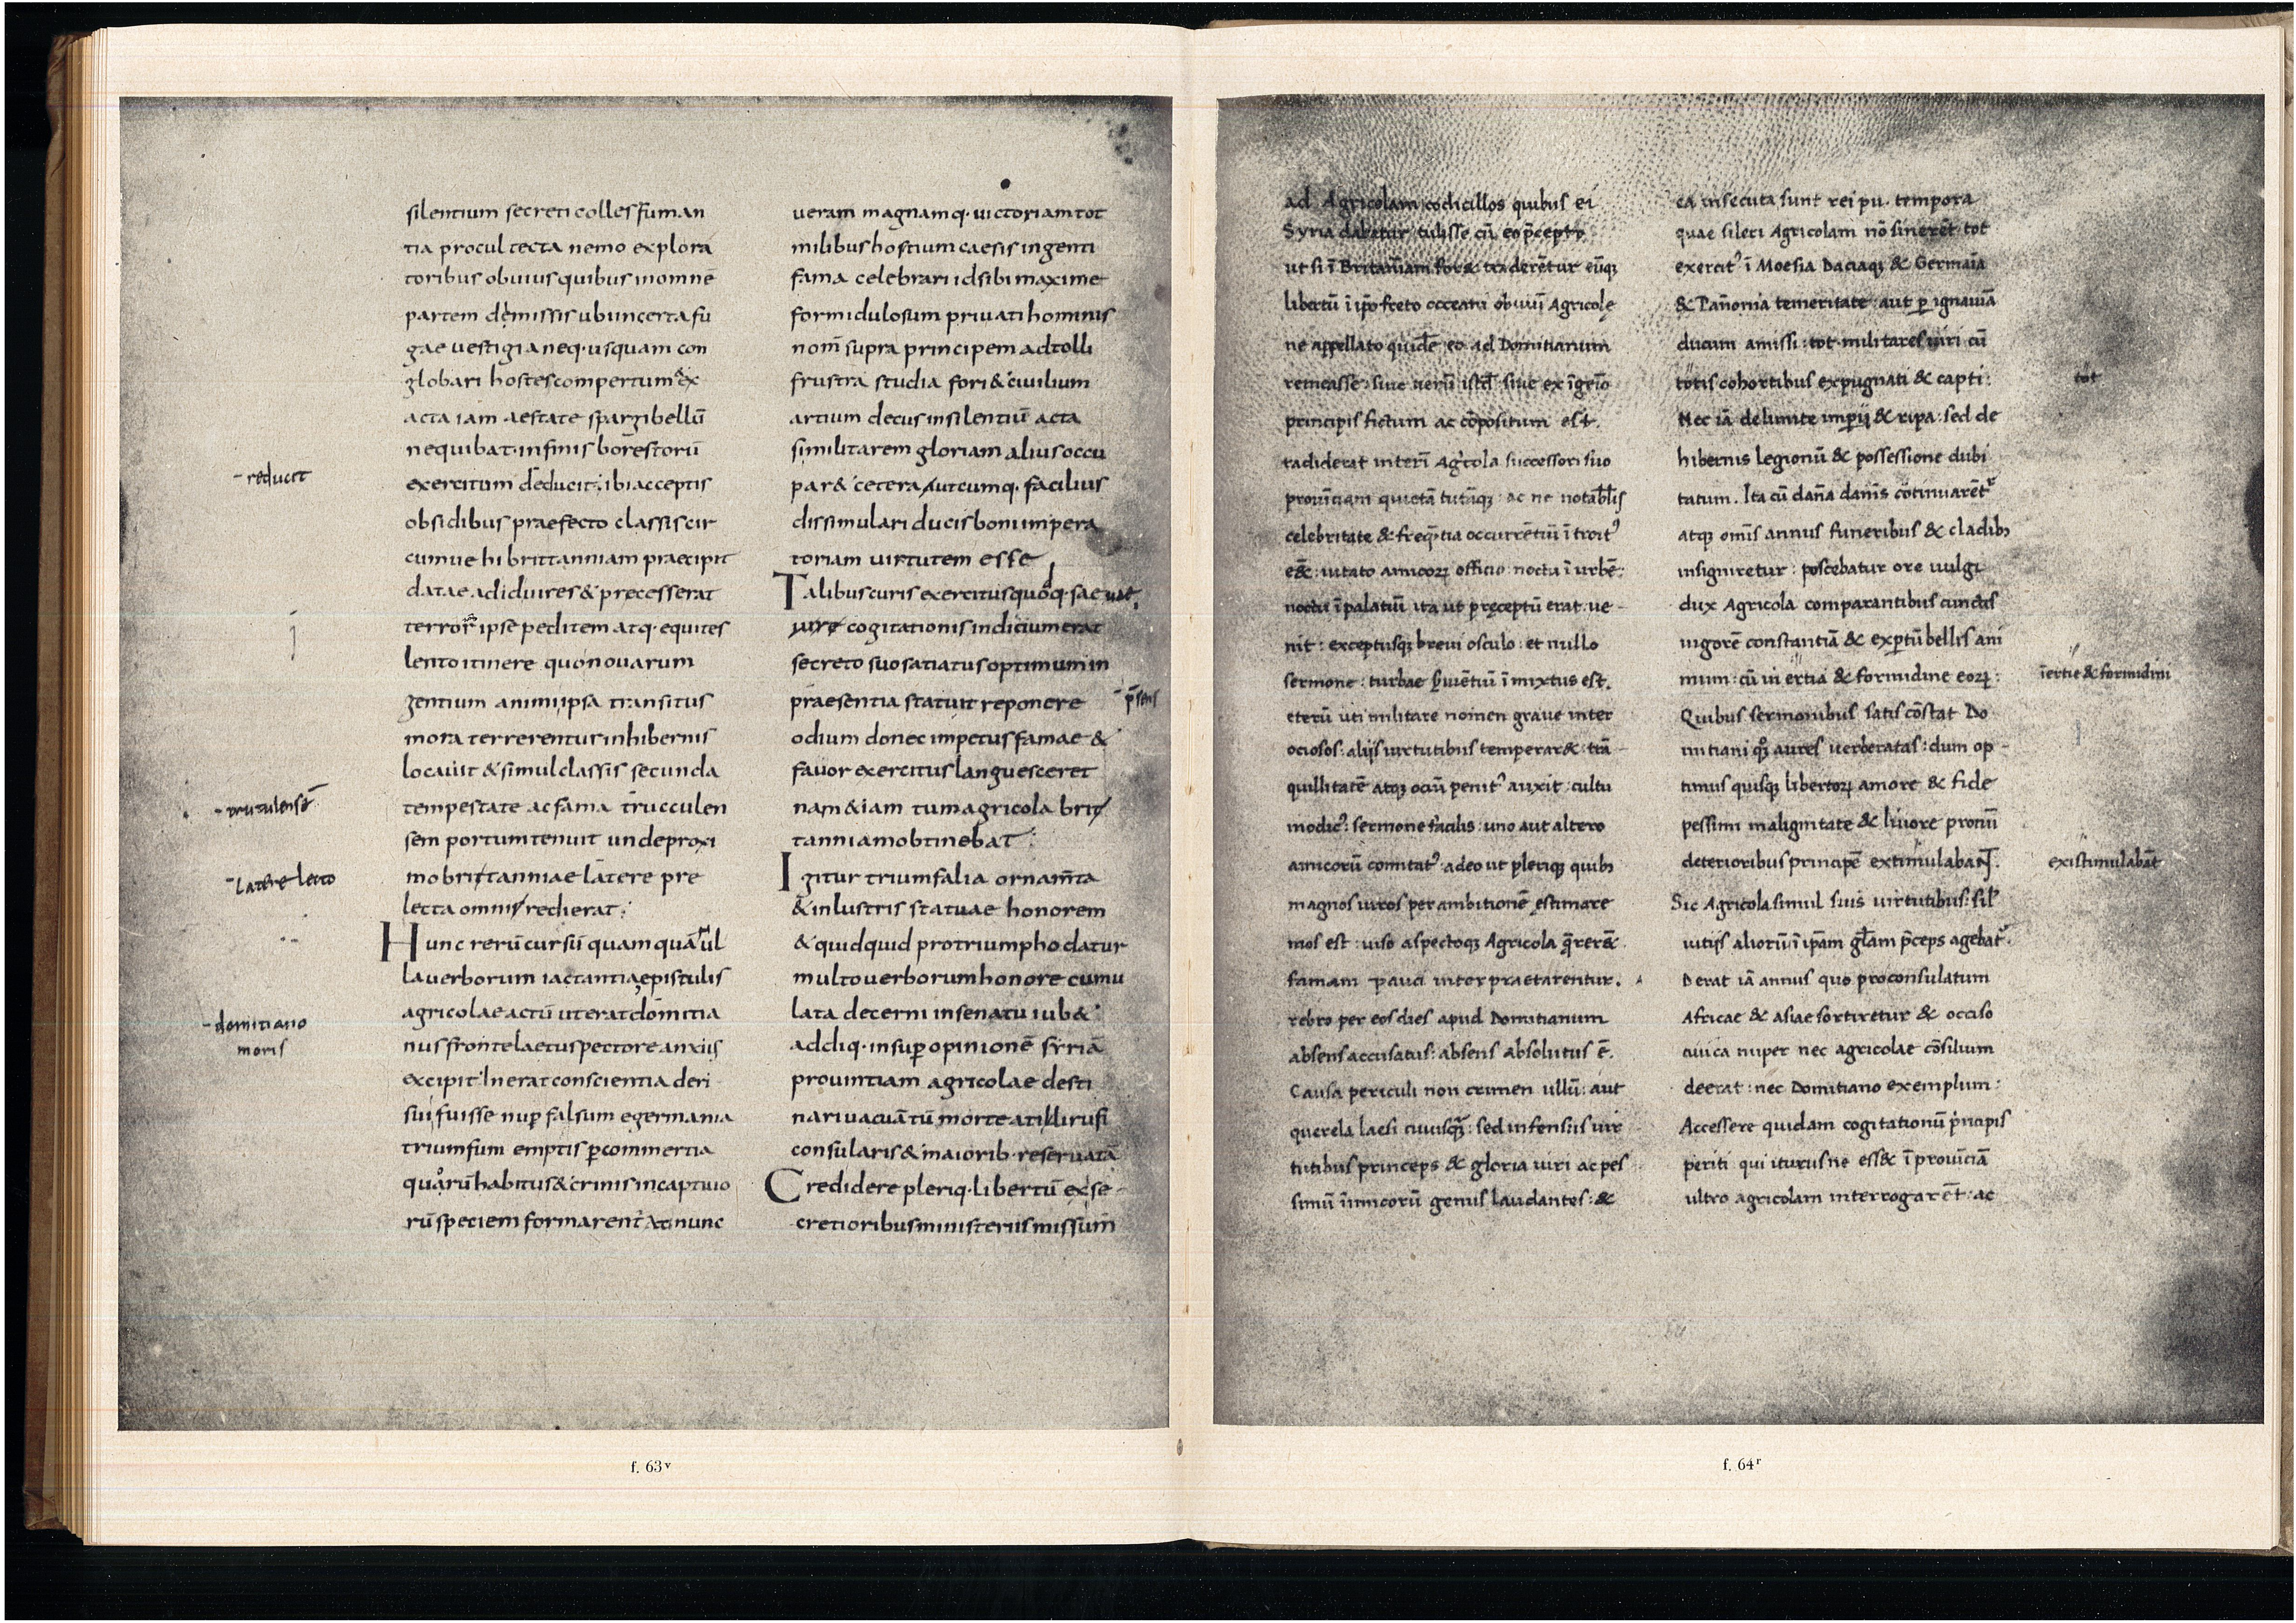 silentium secreti colles fuman
tia procul tecta nemo explora
toribus obuius quibus inomnē
partem dẹmissis ubi incerta fu
gae uestigia neq· usquam con
globari hostes compertum &ex
acta iam aestate spargi bellū
nequibat· infinis borestorū
- reducit
exercitum deducit; ibi acceptis
obsidibus praefecto classis cir
cumuehi brittanniam praecipit
datae adid uires & precesserat
terror ipse peditem atq· equites
lento itinere quo nouarum
gentium animi ipsa transitus
mora terrerentur inhibernis
locauit & simul classis secunda
- trutulensē
tempestate ac fama trucculen
sem portum tenuit unde proxi
- Latere lecto
mo brittanniae latere pre
lecta omni redierat;
Hunc rerū cursū quamquā ul
la uerborum iactantia epistulis
agricolae actū ut erat domitia
- domitiano
moris
nus fronte laetus pectore anxiis
excipit· Inerat conscientia deri
sui fuisse nuꝑ falsum egermania
triumfum emptis ꝑ commertia
quorū habitus & crinis incaptiuo
rū speciem formarent At nunc
ueram magnamq· uictoriam tot
milibus hostium caesis ingenti
fama celebrari id sibi maxime
formidulosum priuati hominis
nom̄ supra principem adtolli
frustra studia fori & ciuilium
artium decus insilentiū acta
si militarem gloriam alius occu
par& cetera utcumq· facilius
dissimulari ducis boni impera
toriam uirtutem esse
Talibus curis exercitus quoq· sae uae,
uire cogitationis indicium erat
secreto suo satiatus optimum in
praesentia statuit reponere
- p̄sens
odium donec impetus famae &
fauor exercitus languesceret
nam & iam tum agricola brit
tanniam obtinebat;
Igitur triumfalia ornam̄ta
& inlustris statuae honorem
& quidquid pro triumpho datur
multo uerborum honore cumu
lata decerni in senatu iub&
addiq· insuꝑ opinionē syriā
prouintiam agricolae desti
nari uacuā tū morte atilii rufi
consularis & maiorib· reseruatā
Credidere pleriq· libertū exse
cretioribus ministeriis missum
ad Agricolam codicillos quibus ei
Syria dabatur tulisse cū eo p̄cepto
ut si ī Britaniam for& traderētur eūq;
libertū ī ip̄o freto occeani obuiū Agricole
ne appellato quidē eo ad Domitianum
remeasse: siue uerū istd̄: siue ex īgēio
principis fictum ac cōpositum est.
radiderat interī Agricola successori suo
prouīciam quietā tutāq;: ac ne notabilis
celebritate & freq̄ntia occurrētiū ītroitꝰ
e&: uitato amicoꝝ officio noctu ī urbē:
noctu ī palatiū ita ut p̄ceptū erat ue-
nit: exceptusq; breui osculo: et nullo
sermone: turbae s̄uiētiū īmixtus est.
eterū uti militare nomen graue inter
ociosos: alijs uirtutibus temperar&: trā-
quillitatē atq; ociū penitꝰ auxit: cultu
modicꝰ: sermone facilis: uno aut altero
amicorū comitatꝰ: adeo ut pleriq; quibꝫ
magnos uiros per ambitionē ęstimare
mos est: uiso aspectoq; Agricola q̄rer&
famam pauci interpraetarentur.
rebro per eos dies apud Domitianum
absens accusatus: absens absolutus ē.
Causa periculi non crimen ullū: aut
querela laesi cuiusq̄: sed infensus uir
tutibus princeps & gloria uiri ac pes
simū inimicorū genus laudantes: &
ea insecuta sunt rei pu. tempora
quae sileri Agricolam nō sinerēt tot
exercitꝰ ī Moesia Daciaq; & Germaīa
& Pan̄onia temeritate aut ꝑ ignauiā
ducum amissi: tot militares uiri cū
totis cohortibus expugnati & capti:
tot
Nec iā de limite imperij & ripa: sed de
hibernis legionū & possessione dubi
tatum. Ita cū dan̄a danīs cōtinuarēt
atq; omīs annus funeribus & cladibꝫ
insigniretur: poscebatur ore uulgi
dux Agricola comparantibus cunctis
uigorē constantiā & exꝑtū bellis ani
mum: cū in ertia & formidine eoꝝ:
īertie & formidini
Quibus sermonibus satis cōstat Do
mitiani qq; aures uerberatas: dum op-
timus quisq; libertoꝝ amore & fide
pessimi malignitate & liuore pronū
deterioribus principē extimulabant.
existimulabāt
Sic Agricola simul suis uirtutibus: sil̄
uitijs aliorū ī ip̄am gl̄am p̄ceps agebat
Derat iā annus quo proconsulatum
Africae & asiae sortiretur & occiso
ciuica nuper nec agricolae cōsilium
deerat: nec Domitiano exemplum:
Accessere quidam cogitationū p̄ncipis
periti qui iturusne ess& ī prouīciā
ultro agricolam interrogarēt: ac
f. 63v
f. 64r